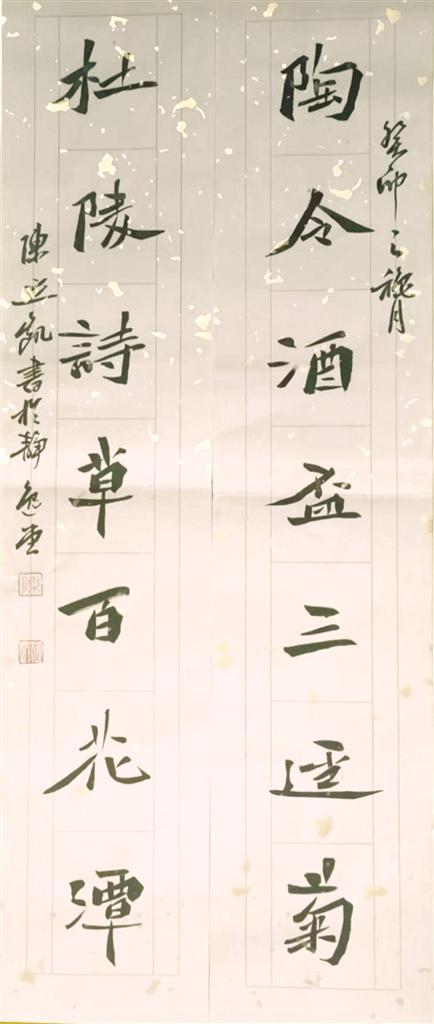 癸卯之月
陶令酒盃三逕菊
杜陵詩草百花潭
陳立凱書於静逸堂